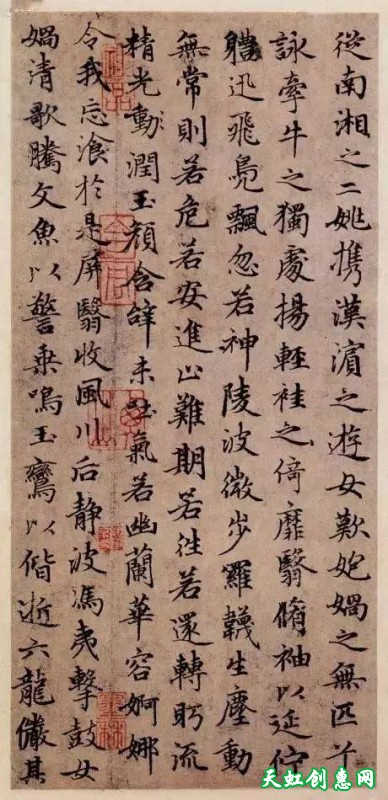 從南湘之二姚携漢濱之遊女歎媧之無匹兮
詠牽牛之獨處揚輕袿之倚靡翳脩袖以延佇
體迅飛鳧飄忽若神陵波微步羅韈生塵動
無常則若危若安進止難期若往若還轉眄流
精光動潤玉顏含辭未吐氣若幽蘭華容婀娜
令我忘飡於是屏翳收風川后静波馮夷擊鼓女
媧清歌騰文魚以警乗鳴玉鸞以偕逝六龍儼其
天虹创惠网